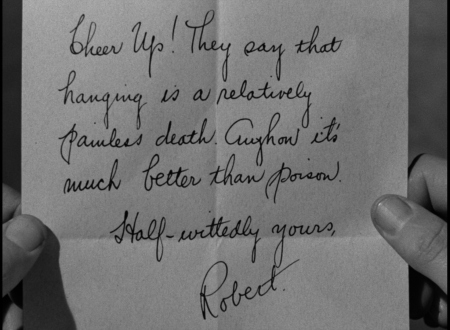 Cheer Up! They say that
hanging is a relatively
painless death. Anyhow it's
much better than poison.
Half-wittedly yours,
Robert.